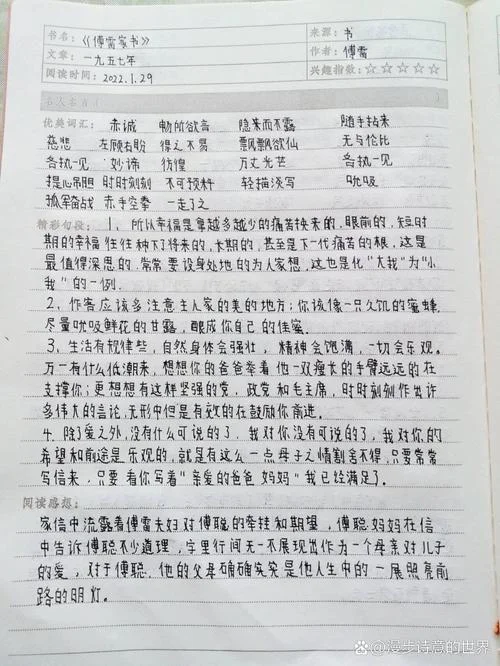 书名：《傅雷家书》 来源：书
文章：一九五七年 作者：傅雷
阅读时间：2022.1.29 兴趣指数：☆☆☆☆☆
优美词汇： 赤诚 畅所欲言 隐来而不露 随手拈来
慈悲 左顾右盼 得之不易 飘飘欲仙 无与伦比
各执一见 妙谛 彷徨 万丈光芒 各执一见
提心吊胆 时时刻刻 不可预料 轻描淡写 吮吸
孤军奋战 赤手空拳 一走了之
精彩句段： 1、所以幸福是拿越多越少的痛苦换来的，眼前的，短时
期的幸福往往种下了将来的，长期的，甚至是下一代痛苦的根，这是
最值得深思的，常常要设身处地的为人家想，这也是化“大我”为“小
我”的一例.
2、作客应该多注意主人家的美的地方；你该像一只久饥的蜜蜂
尽量吮吸鲜花的甘露，酿成你自己的佳蜜.
3、生活有规律些，自然身体会强壮，精神会饱满，一切会乐观。
万一有什么低潮来，想想你的爸爸牵着他一双瘦长的手臂远远的在
支撑你；更想想有这样坚强的党，政党和毛主席，时时刻刻作出许
多伟大的言论，无形中但是有效的在鼓励你前进。
4、除了爱之外，没有什么可说的了，我对你没有可说的了，我对你的
希望和前途是乐观的，就是有这么一点母子之情割舍不得，只要常常
写信来，只要看你写着“亲爱的爸爸妈妈”我已经满足了。
阅读感想：
家信中流露着傅雷夫妇对傅聪的牵挂和期望，傅聪妈妈在信
中告诉傅聪不少道理，字里行间无一不展现出作为一个母亲对儿子
的爱，对于傅聪，他的父母确确实实是他人生中的一展照亮前
路的明灯。
漫步诗意的世界